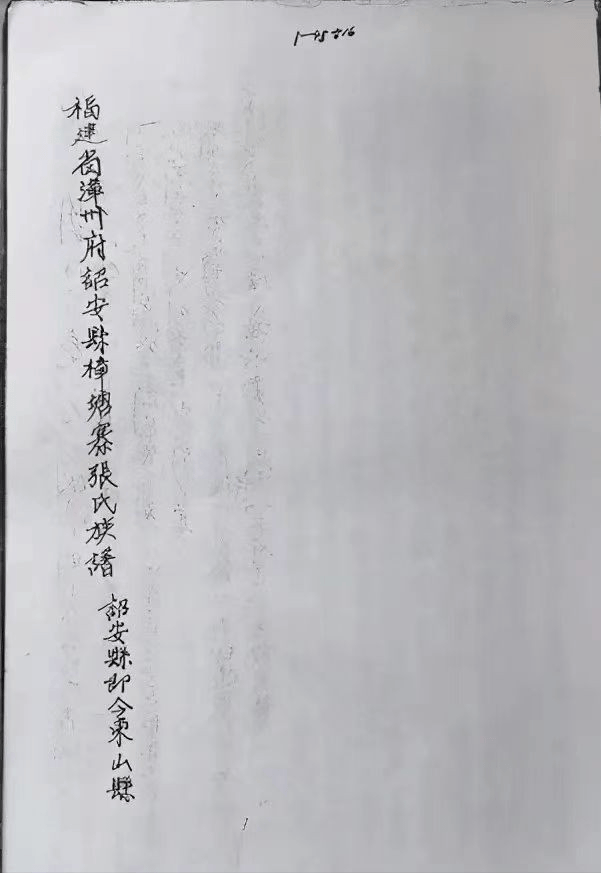 福建省漳州府詔安縣樟塘寨張氏族譜
詔安縣即今東山縣